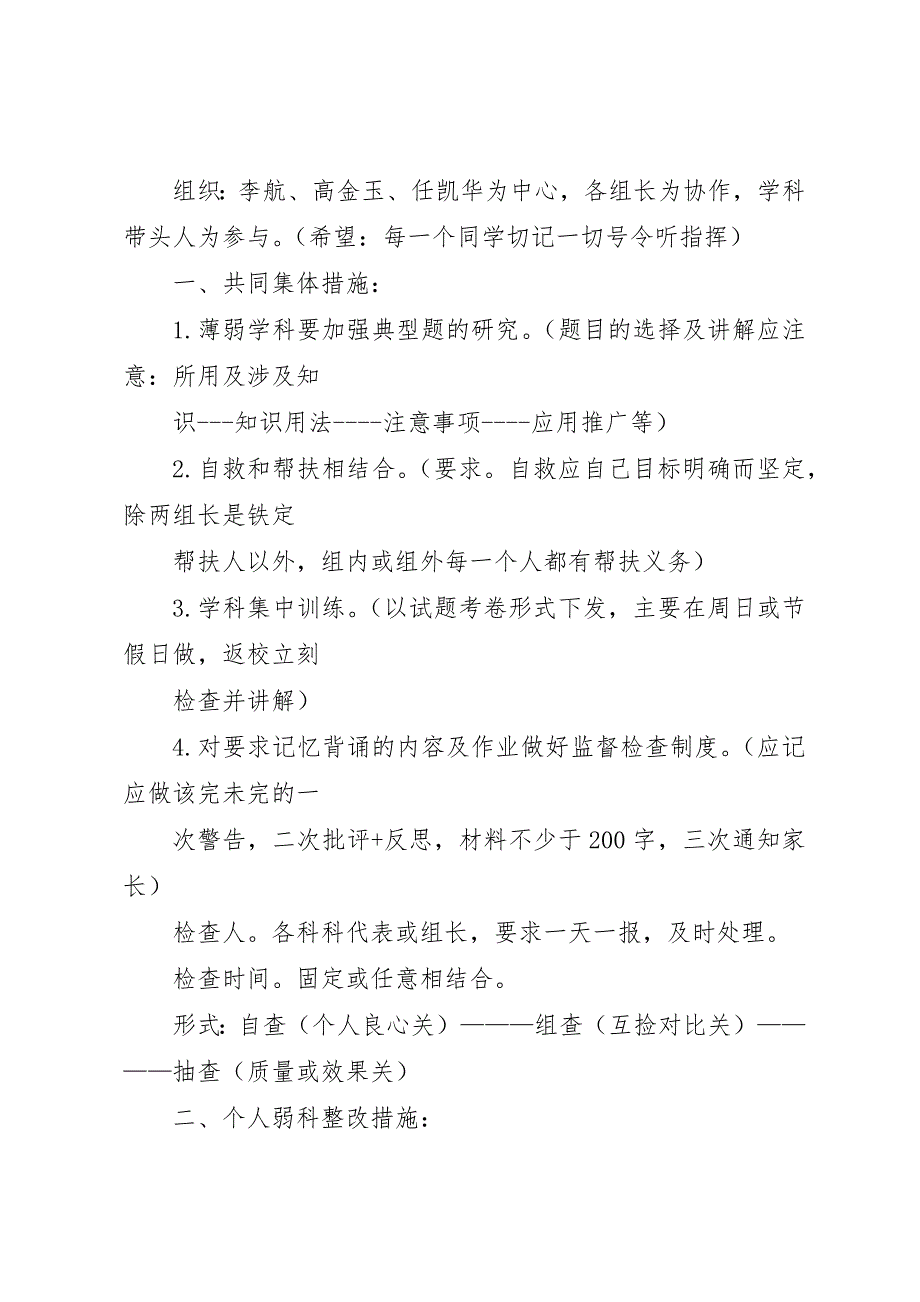 组织：李航、高金玉、任凯华为中心，各组长为协作，学科
带头人为参与。（希望：每一个同学切记一切号令听指挥）
一、共同集体措施：
1.薄弱学科要加强典型题的研究。（题目的选择及讲解应注
意：所用及涉及知
识---知识用法----注意事项----应用推广等）
2.自救和帮扶相结合。（要求。自救应自己目标明确而坚定，
除两组长是铁定
帮扶人以外，组内或组外每一个人都有帮扶义务）
3.学科集中训练。（以试题考卷形式下发，主要在周日或节
假日做，返校立刻
检查并讲解）
4.对要求记忆背诵的内容及作业做好监督检查制度。（应记
应做该完未完的一
次警告，二次批评+反思，材料不少于 200 字，三次通知家
长）
检查人。各科科代表或组长，要求一天一报，及时处理。
检查时间。固定或任意相结合。
形式：自查（个人良心关）———组查（互捡对比关）——
——抽查（质量或效果关）
二、个人弱科整改措施：